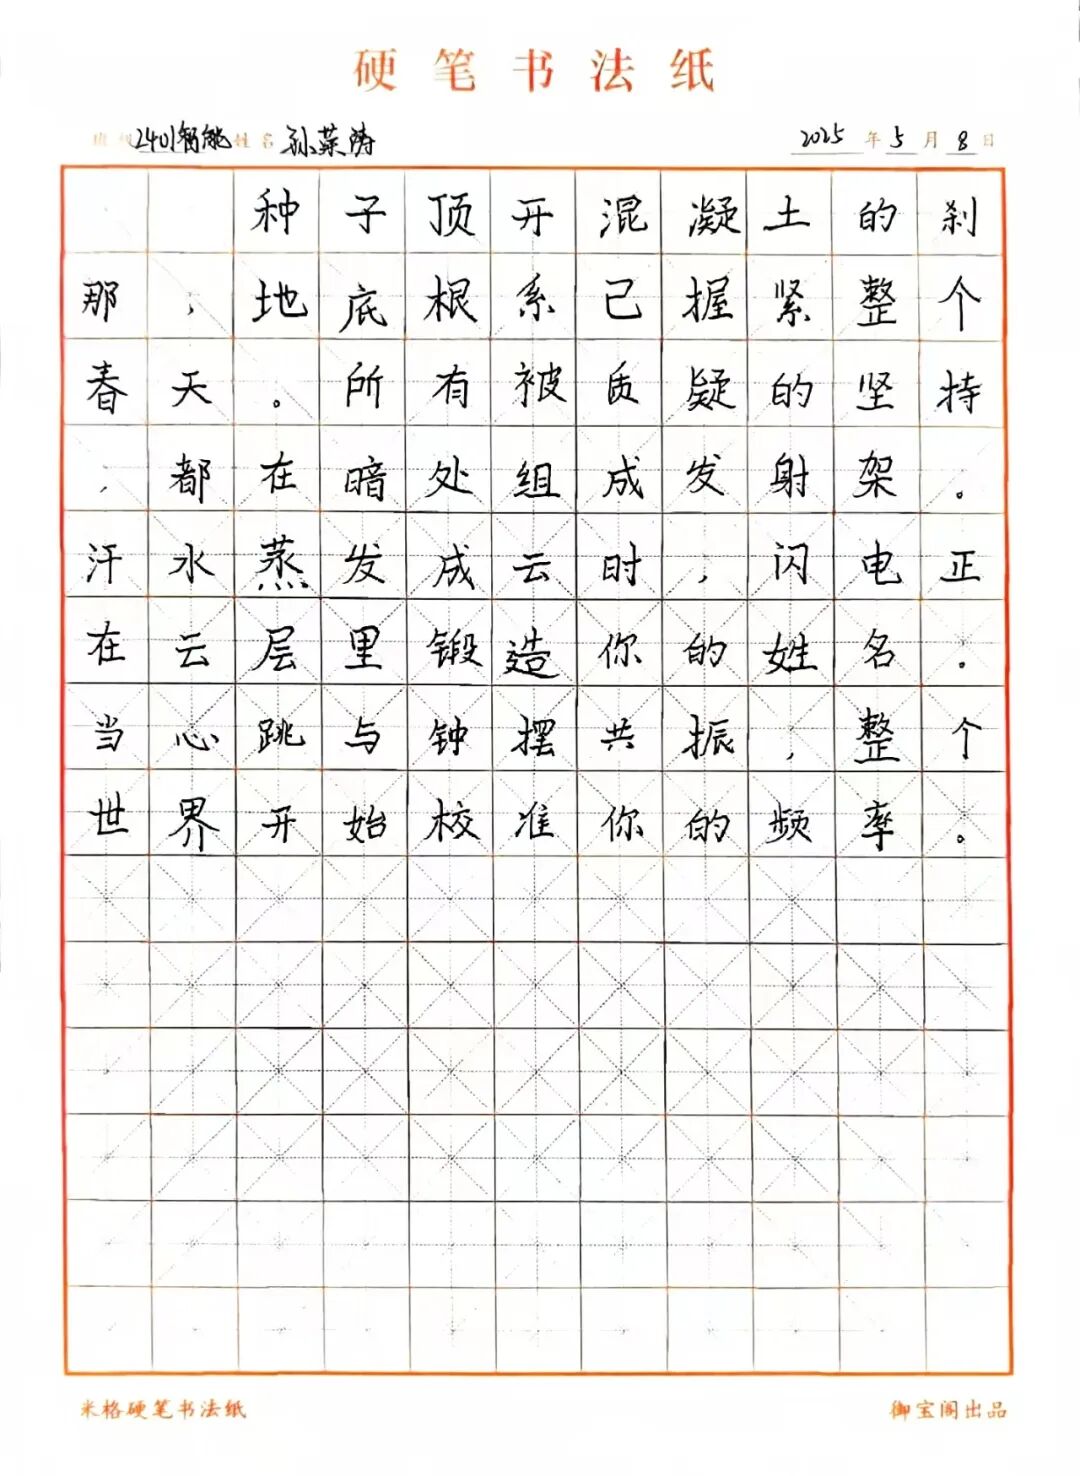 硬笔书法纸
班级2401智能姓名孙荣涛 2025年5月8日
种子顶开混凝土的刹
那，地底根系已握紧整个
春天。所有被质疑的坚持
，都在暗处组成发射架。
汗水蒸发成云时，闪电正
在云层里锻造你的姓名。
当心跳与钟摆共振，整个
世界开始校准你的频率。
米格硬笔书法纸 御宝阁出品